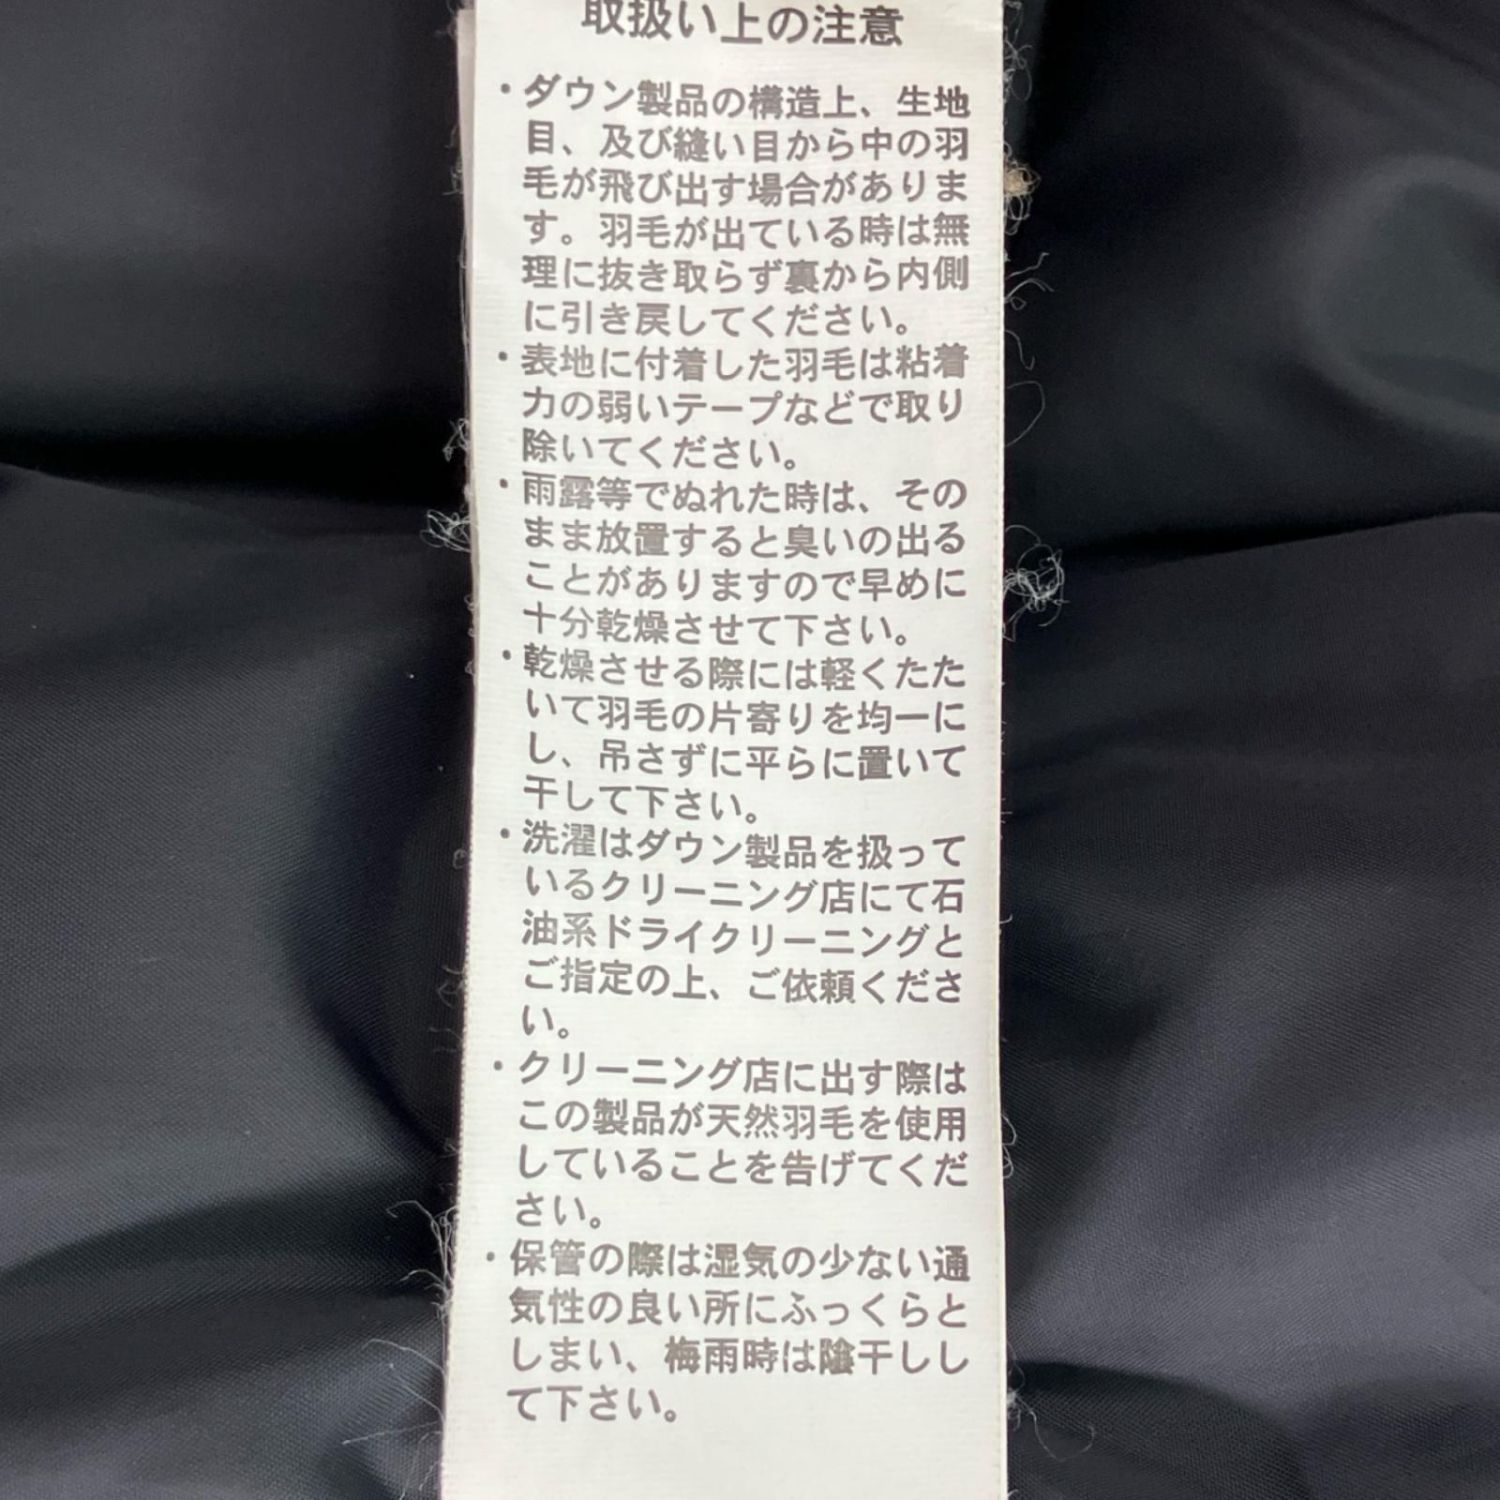 取扱い上の注意
・ダウン製品の構造上、生地
目、及び縫い目から中の羽
毛が飛び出す場合がありま
す。羽毛が出ている時は無
理に抜き取らず裏から内側
に引き戻してください。
・表地に付着した羽毛は粘着
力の弱いテープなどで取り
除いてください。
・雨露等でぬれた時は、その
まま放置すると臭いの出る
ことがありますので早めに
十分乾燥させて下さい。
・乾燥させる際には軽くたた
いて羽毛の片寄りを均一に
し、吊さずに平らに置いて
干して下さい。
・洗濯はダウン製品を扱って
いるクリーニング店にて石
油系ドライクリーニングと
ご指定の上、ご依頼くださ
い。
・クリーニング店に出す際は
この製品が天然羽毛を使用
していることを告げてくだ
さい。
・保管の際は湿気の少ない通
気性の良い所にふっくらと
しまい、梅雨時は陰干しし
て下さい。